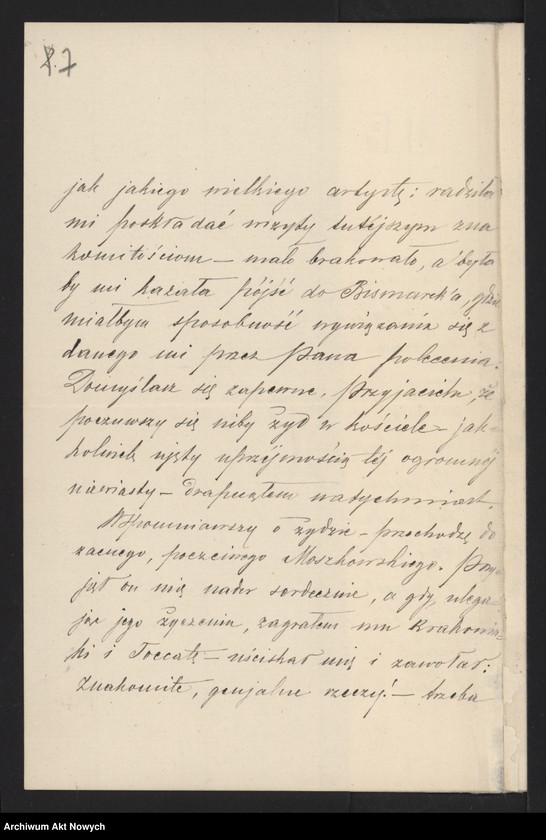 87
jak jakiego wielkiego artystę; radziła
mi poskładać wizyty tutejszym zna
komitościom – mało brakowało, a byłа
by mi kazała pójść do Bismarck'a, gdzie
miałbym sposobność wywiązania się z
danego mi przez Pana polecenia.
Domyślasz się zapewne, Przyjacielu, że
poczuwszy się niby żyd w kościele – jak-
kolwiek ujęty uprzejmością tej ogromnej
niewiasty – drapnąłem natychmiast.
Wspomniawszy o żydzie – przechodzę do
zacnego, poczciwego Moszkowskiego. Przy-
jął on mię nader serdecznie, a gdy, ulega-
jąc jego życzeniu, zagrałem mu Krakowia-
ki i Toccatę – uściskał mię i zawołał:
Znakomite, genjalne rzeczy! – trzeba
Archiwum Akt Nowych